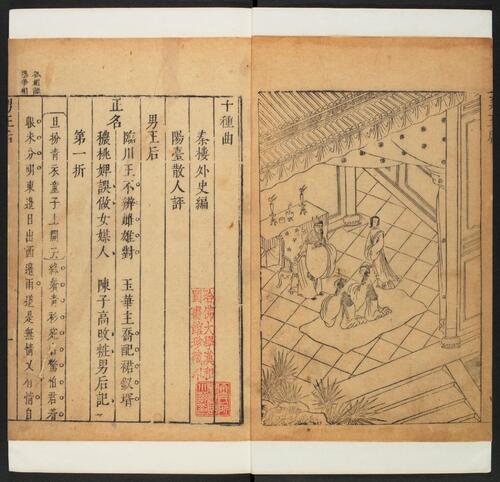 十種曲
秦樓外史編
陽臺散人評
男王后
正名
臨川王不辨雌雄對　玉華主喬配裙釵壻
穠桃婢誤做女媒人　陳子高改粧男后記
第一折
旦扮青衣童子上開云綠鬢青衫
怕君着
眼未分明東邊日出西邊雨道是無情又有情自
男王后